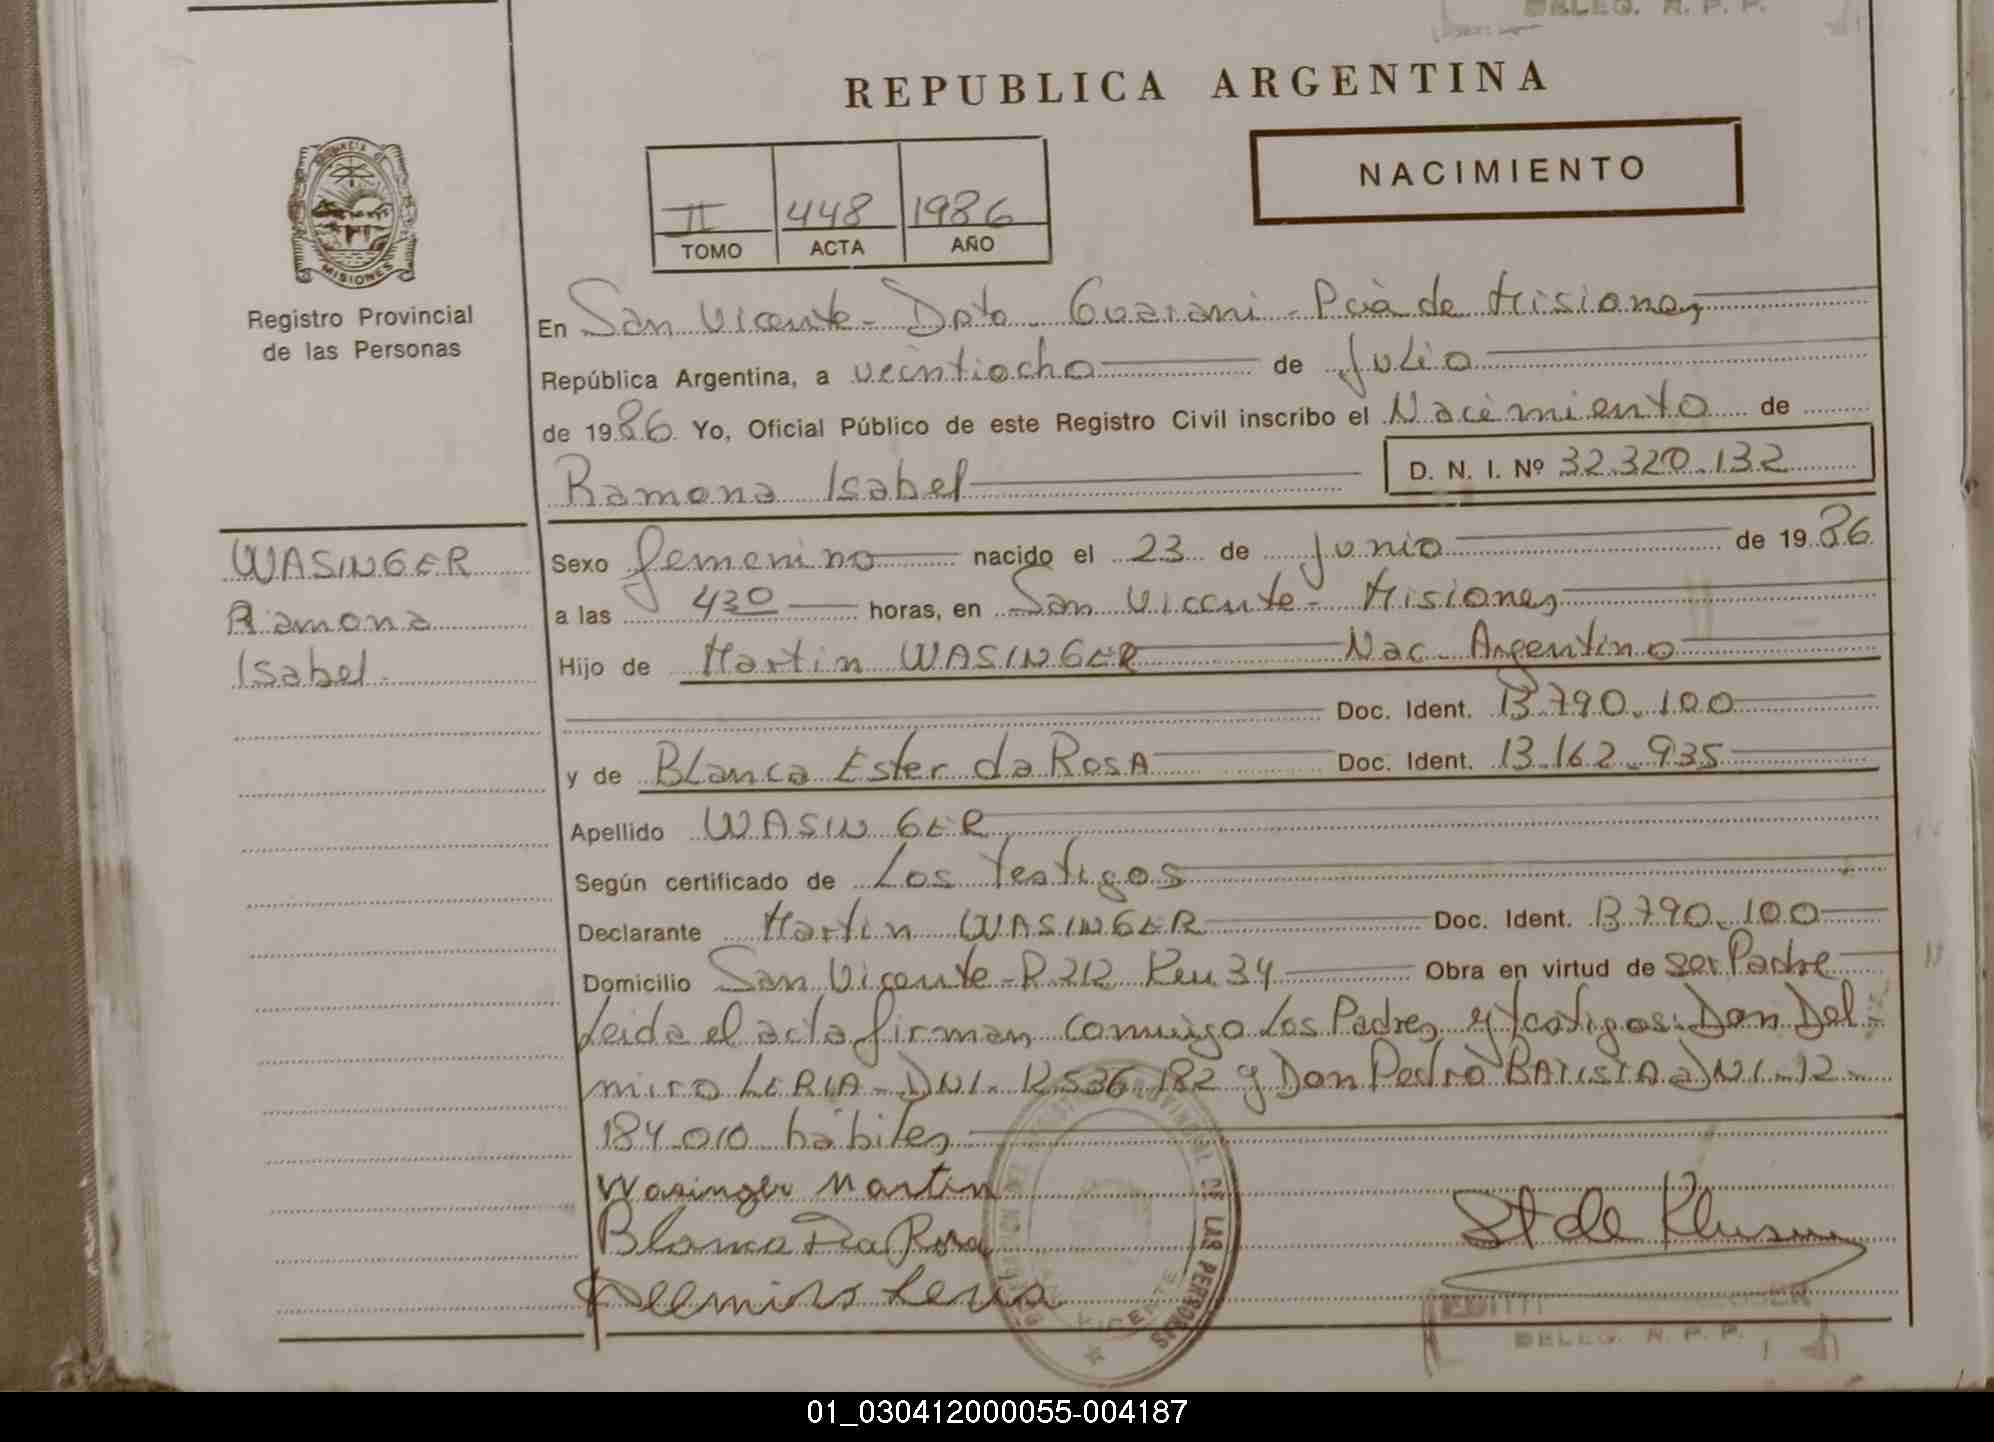 DELEG. R. P. P.
REPUBLICA ARGENTINA
NACIMIENTO
II 448 1986
TOMO ACTA AÑO
PROVINCIA DE
MISIONES
Registro Provincial
de las Personas
En San Vicente - Dpto Guarani - Pcia de Misiones
República Argentina, a veintiocho de Julio
de 1986 Yo, Oficial Público de este Registro Civil inscribo el Nacimiento de
Ramona Isabel D. N. I. Nº 32.320.132
WASINGER
Ramona
Isabel.
Sexo femenino nacido el 23 de Junio de 1986
a las 430 horas, en San Vicente - Misiones
Hijo de Martin WASINGER Nac. Argentino
Doc. Ident. 13.790.100
y de Blanca Ester da ROSA Doc. Ident. 13.162.935
Apellido WASINGER
Según certificado de Los Testigos
Declarante Martin WASINGER Doc. Ident. 13.790.100
Domicilio San Vicente - R 212 Km 34 Obra en virtud de ser Padre
Leida el acta firman conmigo Los Padres y testigos: Don Del-
miro LERIA - DNI. 12.536.182 y Don Pedro BATISTA DNI - 12-
184.010 hábiles
Wasinger Martin
Blanca Da Rosa
Delmiro Leria
REGISTRO PROVINCIAL DE LAS PERSONAS
VICENTE
DELEG. R. P. P.
01_030412000055-004187